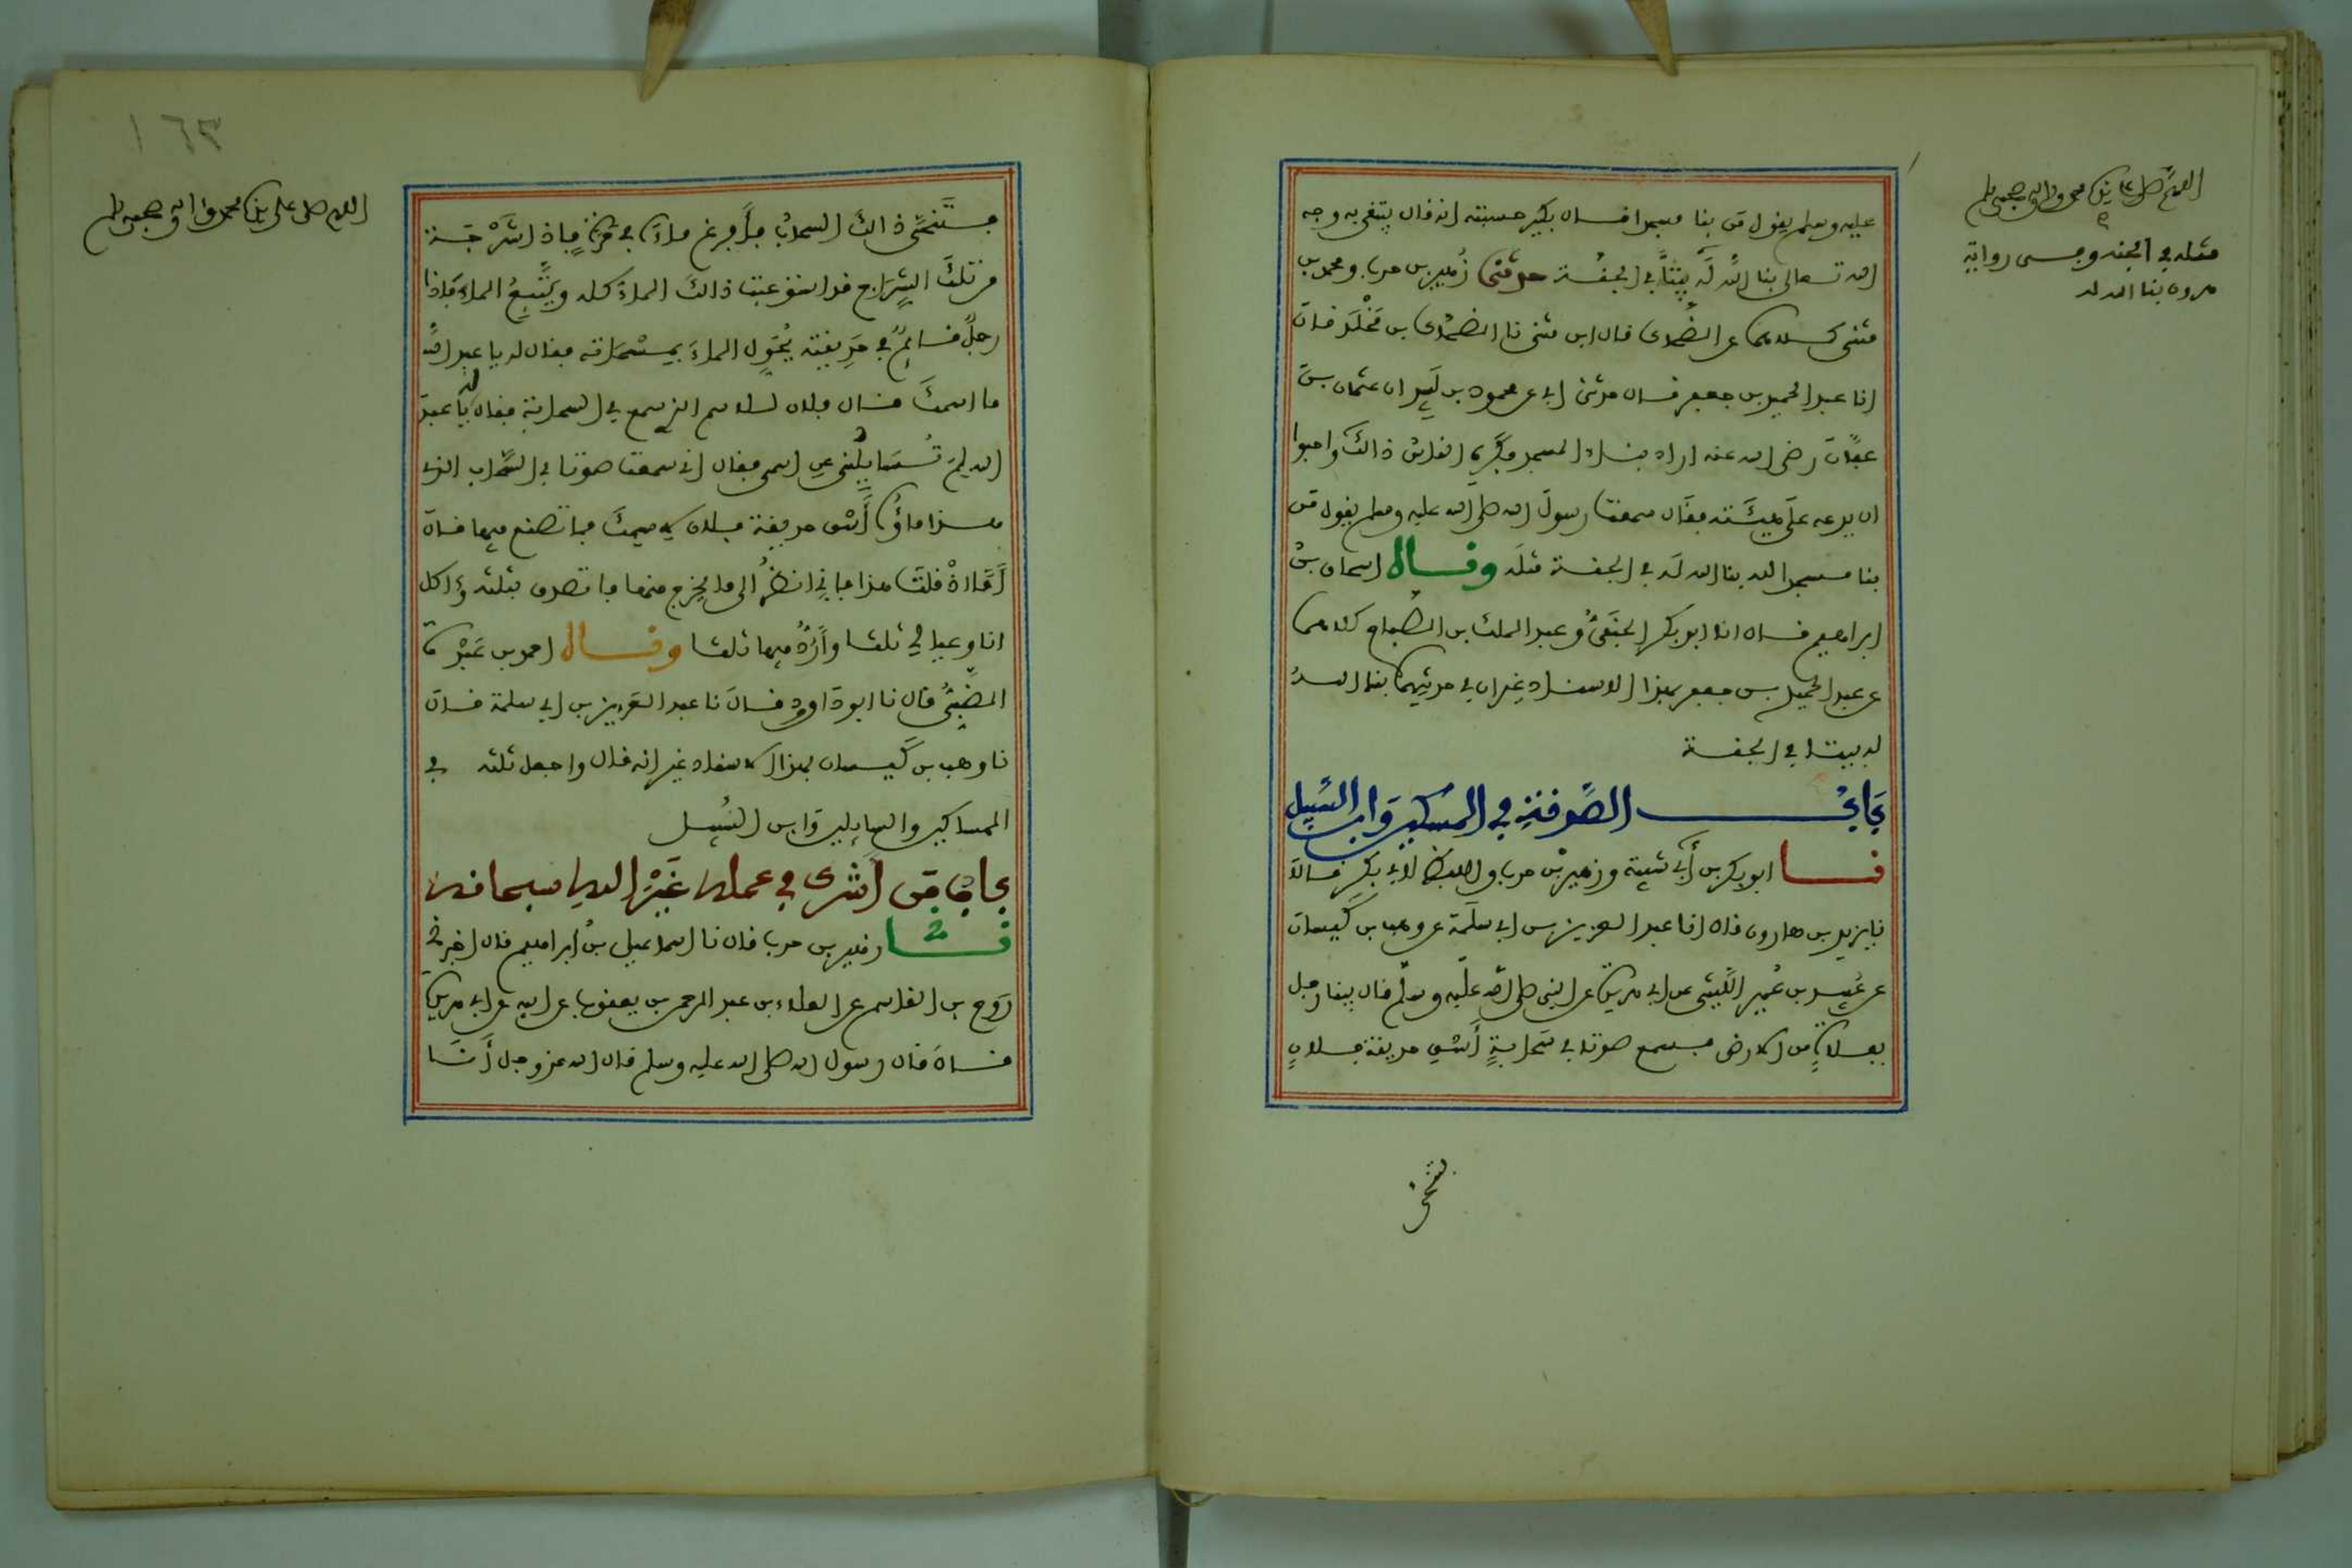 عليه وسلم يقول من بنا مسجدا قال بكير حسبته انه قال يبتغي به وجه
الله تعالى بنا الله له بيتا في الجنة حدثني زهير بن حرب ومحمد بن
مثنى كلاهما عن الضحاك قال ابن مثنى نا الضحاك بن مخلد قال
انا عبد الحميد بن جعفر قال حدثني ابي عن محمود بن لبيد ان عثمان بن
عفان رضي الله عنه اراد بناء المسجد فكره الناس ذالك واحبوا
ان يدعه على هيئته فقال سمعت رسول الله صلى الله عليه وسلم يقول من
بنا مسجدا لله بنا الله له في الجنة مثله وقال اسحاق بن
ابراهيم قال انا ابو بكر الحنفي وعبد الملك بن الصباح كلاهما
عن عبد الحميد بن جعفر بهذا الاسناد غير ان في حديثهما بنا الله
له بيتا في الجنة
باب الصدقة في المسكين وابن السبيل
نا ابو بكر بن أبي شيبة وزهير بن حرب واللفظ لابي بكر قالا
نا يزيد بن هارون قال انا عبد العزيز بن ابي سلمة عن وهب بن كيسان
عن عبيد بن عمير الليثي عن ابي هريرة عن النبي صلى الله عليه وسلم قال بينا رجل
بفلاة من الارض فسمع صوتا في سحابة أسق حديقة فلان
فتنحى
اللهم صل على نبينا محمد واله وصحبه وسلم
مثله في الجنة وحسي رواية
هرون بنا الله له
فتنحى ذالك السحاب فأفرغ ماءه في حرة فإذا شرجة
من تلك الشراج قد استوعبت ذالك الماء كله ويتتبع الماء فإذا
رجل قائم في حديقته يحول الماء بمسحاته فقال له يا عبد الله
ما اسمك قال فلان للاسم الذي سمع في السحابة فقال له يا عبد
الله لم تسايلني عن اسمي فقال اني سمعت صوتا في السحاب الذي
هذا ماؤه أسق حديقة فلان لاسمك فما تصنع فيها قال
أما اذ قلت هذا فاني انظر الى ما يخرج منها فاتصدق بثلثه وءاكل
انا وعيالي ثلثا وأرد فيها ثلثا وقال احمد بن عبدة
الضبي قال نا ابو داوود قال نا عبد العزيز بن ابي سلمة قال
نا وهب بن كيسان بهذا الاسناد غير انه قال واجعل ثلثه في
المساكين والسايلين وابن السبيل
باب من اشرك في عمله غير الله سبحانه
حدثني زهير بن حرب قال نا اسماعيل بن ابراهيم قال اخبرني
روح بن القاسم عن العلاء بن عبد الرحمن بن يعقوب عن ابيه عن ابي هريرة
قال قال رسول الله صلى الله عليه وسلم قال الله عز وجل أنا
اللهم صل على نبينا محمد واله وصحبه وسلم
١٦٣